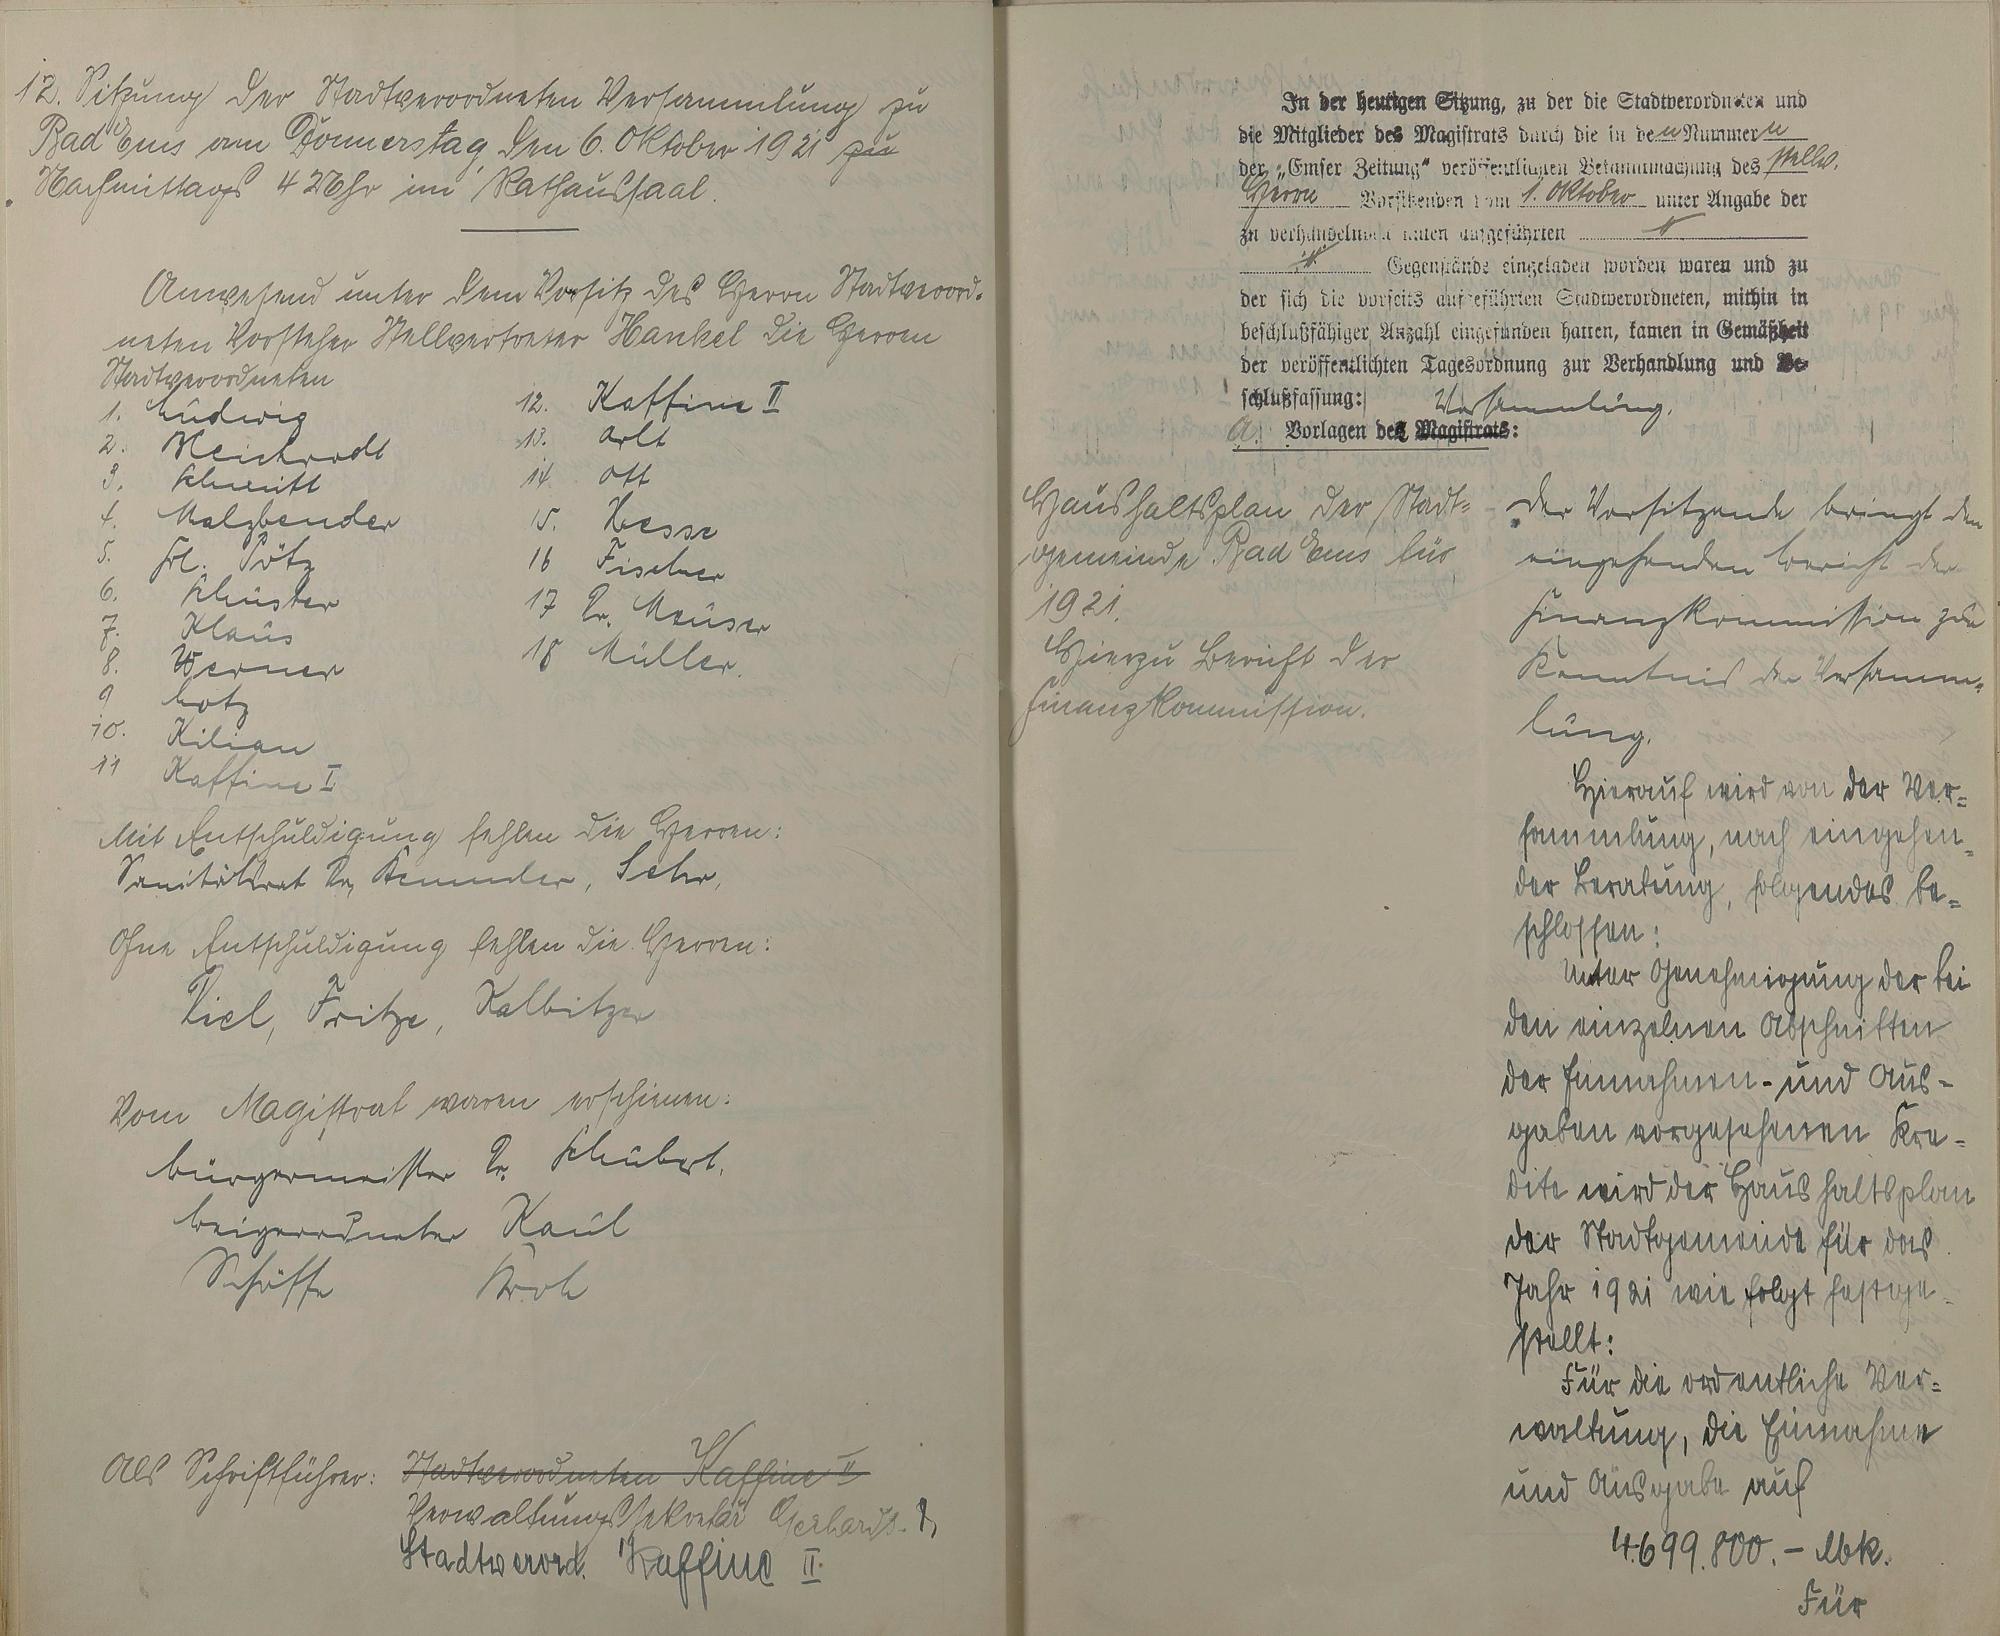 12. Sitzung der Stadtverordneten Versammlung zu
Bad Ems am Donnerstag den 6. Oktober 1921 zu
Nachmittags 4 Uhr im Rathaussaal.
Anwesend unter dem Vorsitz des Herrn Stadtverord-
neten Vorsteher Stellvertreter Hankel die Herren
Stadtverordneten
1. Ludwig
2. Weichrodt
3. Schmitt
4. Malzbender
5. Frl. Pötz
6. Schuster
7. Klaus
8. Werner
9 Lotz
10. Kilian
11 Kaffine I
12. Kaffine II
13. Arlt
14 Ott
15. Hesse
16 Fischer
17 Dr. Meuser
18 Müller.
Mit Entschuldigung fehlen die Herren:
Sanitätsrat Dr. Stemmler, Sehr,
Ohne Entschuldigung fehlen die Herren:
Diel, Fritze, Kalbitzer
Vom Magistrat waren erschienen:
Bürgermeister Dr. Schubert.
Beigeordneter Kaul
Schöffe Kroh
Als Schriftführer: Stadtverordneten Kaffine II
Verwaltungssekretär Gerhards.
Stadtverord. Kaffine II.
In der heutigen Sitzung, zu der die Stadtverordneten und
die Mitglieder des Magistrats durch die in den Nummern
der „Emser Zeitung" veröffentlichten Bekanntmachung des stellv.
Herrn Vorsitzenden vom 1. Oktober unter Angabe der
zu verhandelnden unten aufgeführten
Gegenstände eingeladen worden waren und zu
der sich die vorseits aufgeführten Stadtverordneten, mithin in
beschlußfähiger Anzahl eingefunden hatten, kamen in Gemäßheit
der veröffentlichten Tagesordnung zur Verhandlung und Be-
schlußfassung:
Versammlung.
A. Vorlagen der Magistrats:
Haushaltsplan der Stadt-
gemeinde Bad Ems für
1921.
Hierzu Bericht der
Finanzkommission.
Der Vorsitzende bringt den
eingehenden Bericht der
Finanzkommission zur
Kenntnis der Versamm-
lung.
Hierauf wird von der Ver-
sammlung, nach eingehen-
der Beratung, folgendes be-
schlossen:
Unter Genehmigung der bei
den einzelnen Abschnitten
der Einnahmen- und Aus-
gaben vorgesehenen Kre-
dite wird der Haushaltsplan
der Stadtgemeinde für das
Jahr 1921 wie folgt festge-
stellt:
Für die ordentliche Ver-
waltung, die Einnahme
und Ausgabe auf
4.699.800.- Mk.
Für